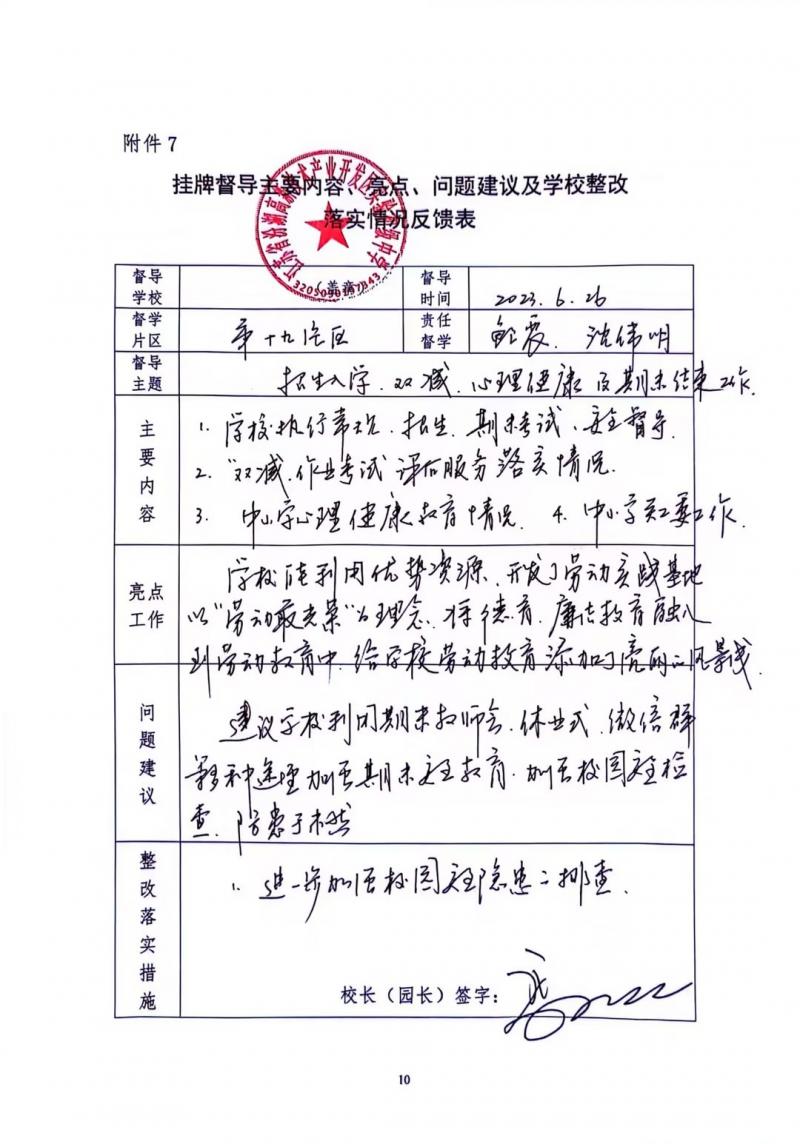 附件7
挂牌督导主要内容、亮点、问题建议及学校整改
落实情况反馈表
江苏省汾湖高新技术产业开发区实验初级中学
3205090167843
督导学校 (盖章) 督导时间 2023.6.26
督学片区 第十九片区 责任督学 鲍震、沈伟明
督导主题 招生入学、双减、心理健康及期末结束工作.
主要内容
1. 学校执行常规、招生、期末考试、安全督导.
2. "双减、作业考试评价服务落实情况.
3. 中小学心理健康教育情况. 4. 中小学工委工作.
亮点工作
学校能利用优势资源、开发了劳动实践基地
以"劳动最光荣"为理念、将德育、廉洁教育融入
到劳动教育中.给学校劳动教育添加了亮丽的风景线.
问题建议
建议学校利用期末教师会、休业式、微信群
等多种途径加强期末安全教育.加强校园安全检
查.防患于未然
整改落实措施
1. 进一步加强校园安全隐患的排查.
校长（园长）签字：
10